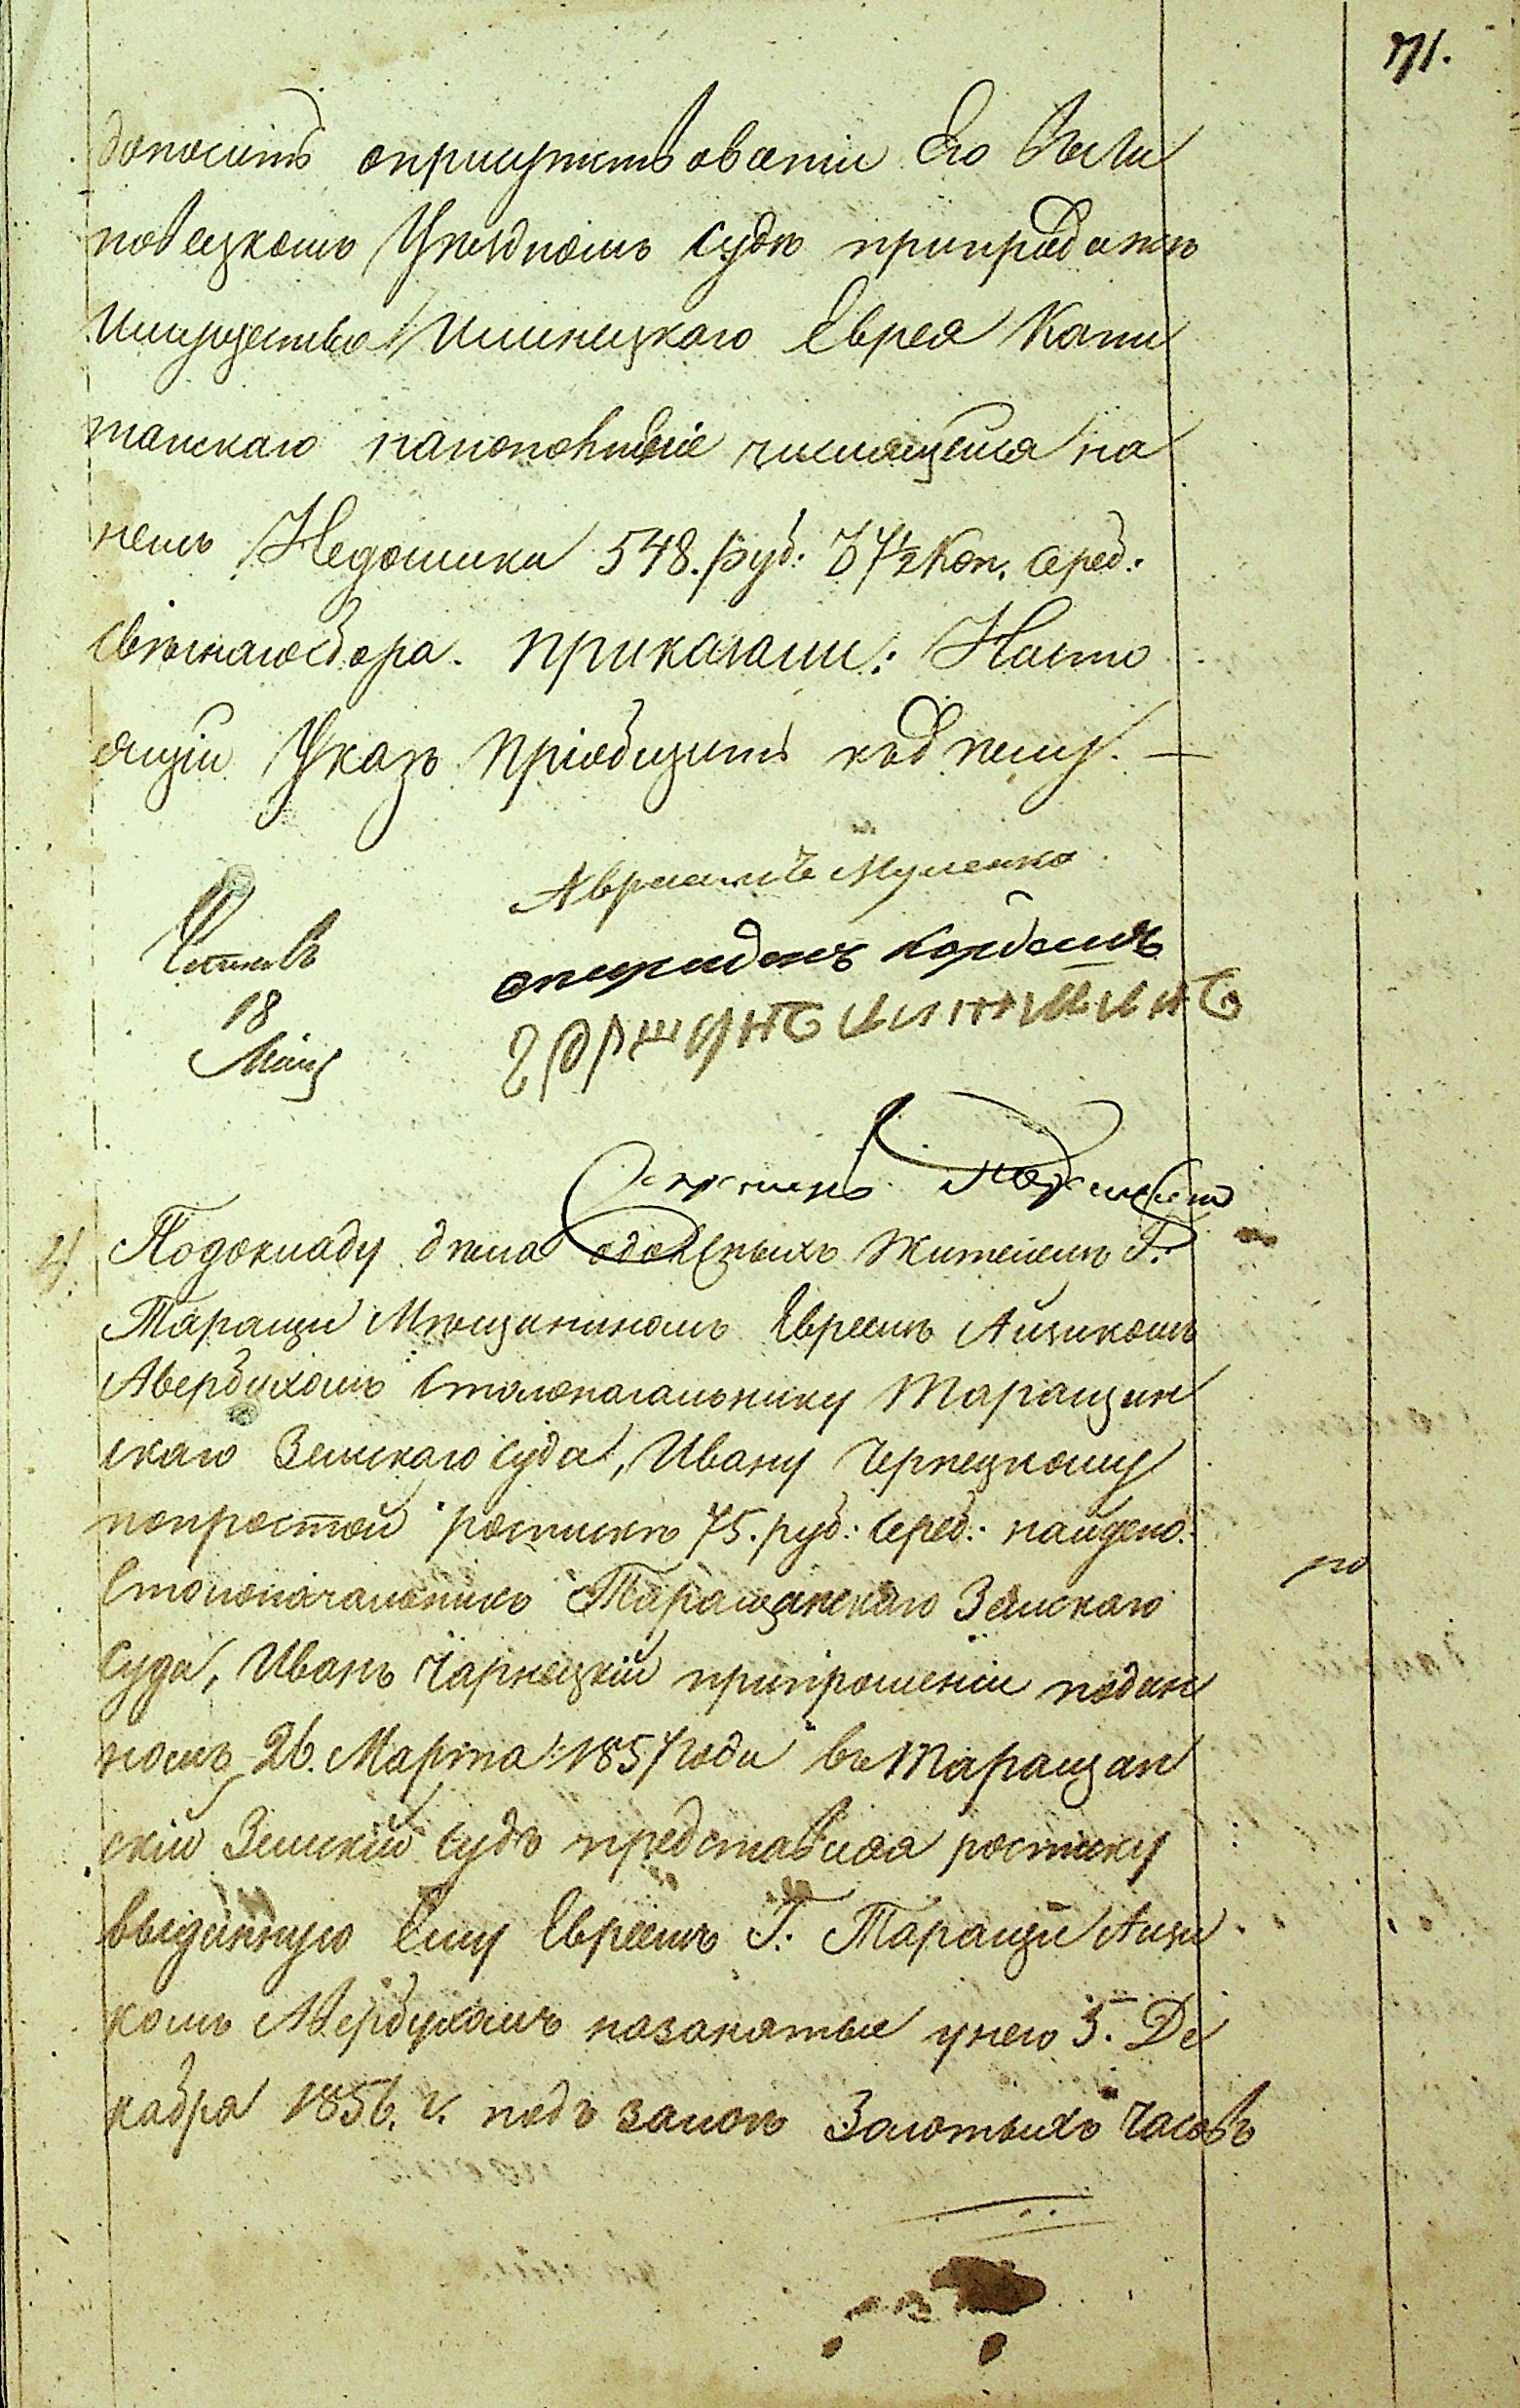 171.
доноситъ оприсутствованіи Его Вьли
повецкомъ Уѣздномъ судѣ припродажѣ
Имущества Илинецкаго Еврея Капи
танскаго напополненіе числящейся на
немъ Недоимки 548. руб: 67½ Коп. сереб:
свѣчнагосбора. приказали: Насто
ящій Указъ пріобщить къдѣлу. —
Авраамъ Мусенко
спиридонъ кордашъ
Читалъ
18
Маія
4.
Подокладу дѣла одолженныхъ Жителемъ Г.
Таращи Мѣщаниномъ Евреемъ Айцикомъ
Авербухомъ Столоначальнику Таращан
скаго Земскаго суда, Ивану Чернецкому
попростой роспискѣ 75. руб: сереб: найдено:
Столоначальникъ Таращанскаго Земскаго
Суда, Иванъ Чарнецкій припрошеніи подан
номъ 26. Марта 1857 года въ Таращан
скій Земскій судъ представилъ росписку
выданную Ему Евреемъ Г. Таращи Айци
комъ Авербухомъ назанятые унего 5. Де
кабря 1856. г. подъ залогъ Золотыхъ часовъ